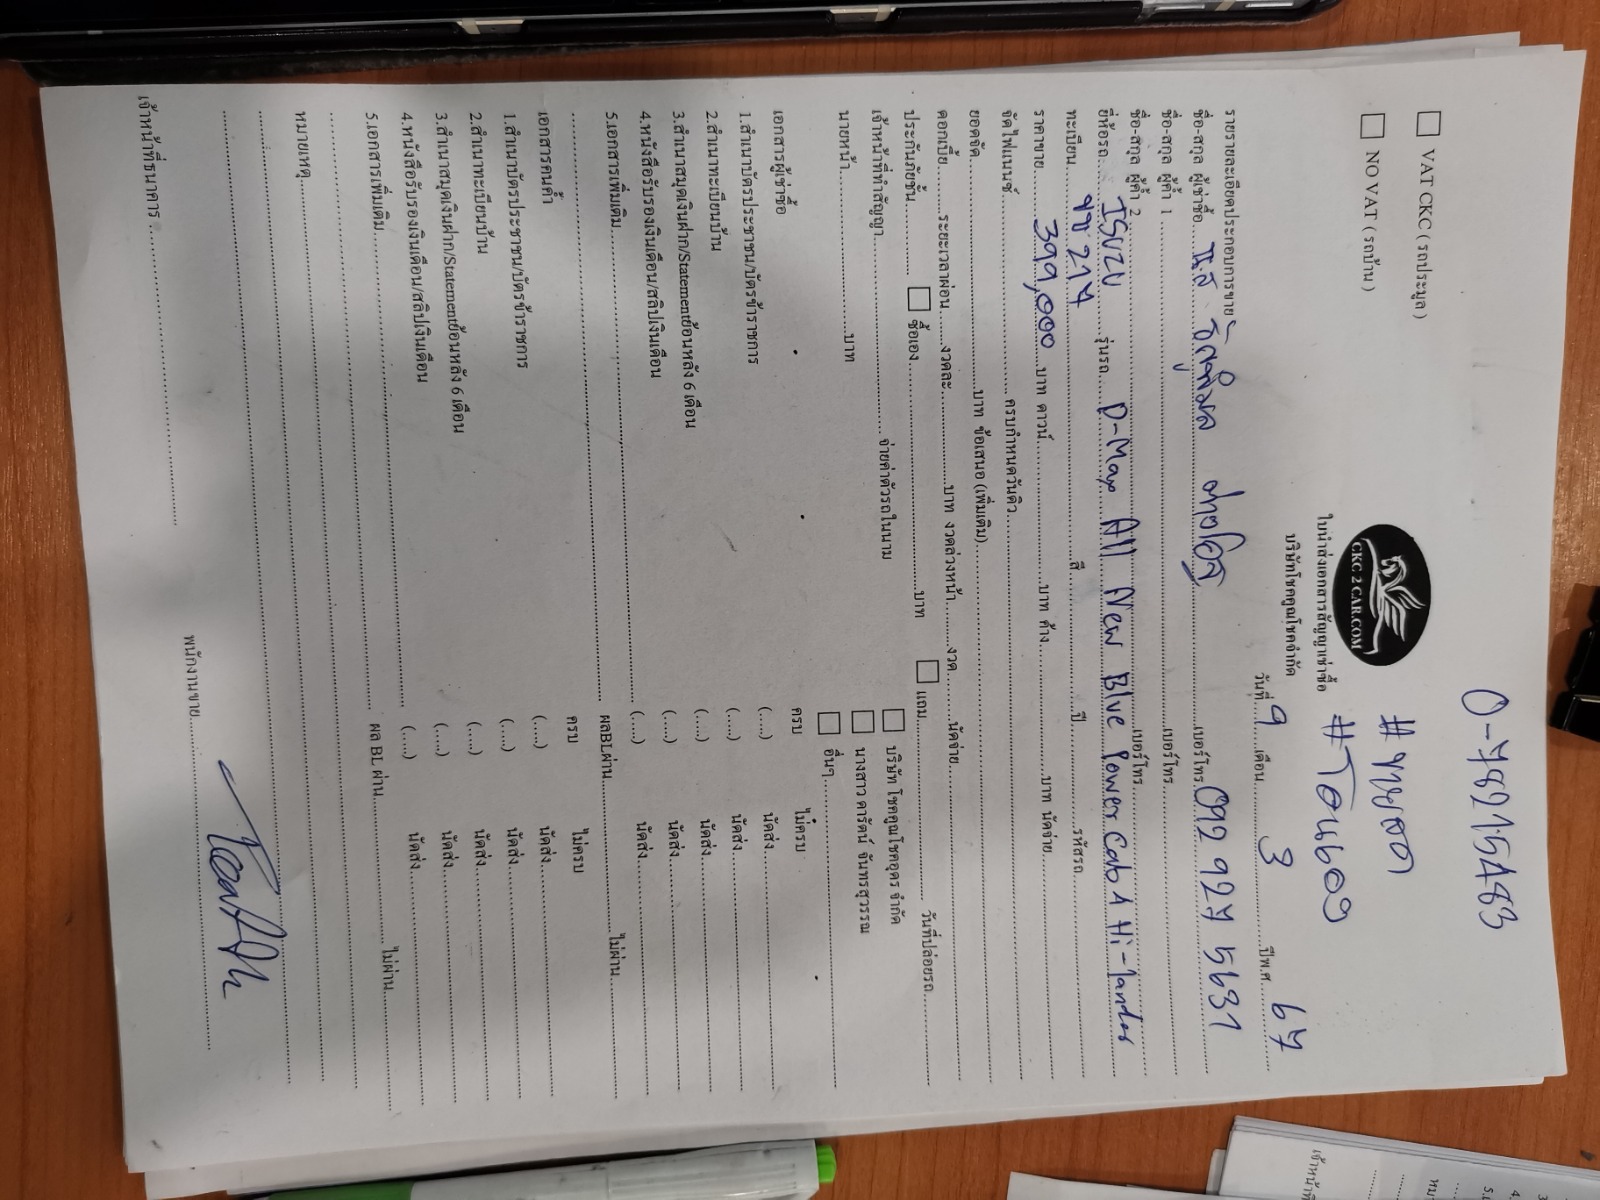 0-4821 5483
#ขายสด
#โอนเอง
CKC 2 CAR.COM
ใบนำส่งเอกสารสัญญาเช่าซื้อ
บริษัทโชคคูณโชคจำกัด
☐ VAT CKC ( รถประมูล )
☐ NO VAT ( รถบ้าน )
วันที่ 9 เดือน 3 ปีพ.ศ. 67
รายรายละเอียดประกอบการขาย
ชื่อ-สกุล ผู้เช่าซื้อ น.ส เบอร์โทร 092 927 5631
ชื่อ-สกุล ผู้ค้ำ 1 เบอร์โทร
ชื่อ-สกุล ผู้ค้ำ 2 เบอร์โทร
ยี่ห้อรถ ISUZU รุ่นรถ D-Max All New Blue Power Cab 4 Hi-lander
ทะเบียน 217 สี ปี รหัสรถ
ราคาขาย 399,000 บาท ดาวน์ บาท ค้าง บาท นัดจ่าย
จัดไฟแนนซ์ ครบกำหนดวันคิว
ยอดจัด บาท ข้อเสนอ (เพิ่มเติม)
ดอกเบี้ย ระยะเวลาผ่อน งวดละ บาท งวดล่วงหน้า งวด นัดจ่าย
ประกันภัยชั้น ☐ ซื้อเอง บาท ☐ แถม วันที่ปล่อยรถ
เจ้าหน้าที่ทำสัญญา จ่ายค่าตัวรถในนาม ☐ บริษัท โชคคูณโชคอุดร จำกัด
นายหน้า บาท ☐ นางสาว ดารัตน์ จันทรสุวรรณ
☐ อื่นๆ
เอกสารผู้เช่าซื้อ ครบ ไม่ครบ
1.สำเนาบัตรประชาชน/บัตรข้าราชการ (....) นัดส่ง
2.สำเนาทะเบียนบ้าน (....) นัดส่ง
3.สำเนาสมุดเงินฝาก/Statementย้อนหลัง 6 เดือน (....) นัดส่ง
4.หนังสือรับรองเงินเดือน/สลิปเงินเดือน (....) นัดส่ง
5.เอกสารเพิ่มเติม (....) นัดส่ง
ผลBLผ่าน ไม่ผ่าน
เอกสารคนค้ำ ครบ ไม่ครบ
1.สำเนาบัตรประชาชน/บัตรข้าราชการ (....) นัดส่ง
2.สำเนาทะเบียนบ้าน (....) นัดส่ง
3.สำเนาสมุดเงินฝาก/Statementย้อนหลัง 6 เดือน (....) นัดส่ง
4.หนังสือรับรองเงินเดือน/สลิปเงินเดือน (....) นัดส่ง
5.เอกสารเพิ่มเติม (....) นัดส่ง
ผล BL ผ่าน ไม่ผ่าน
หมายเหตุ
เจ้าหน้าที่ธนาคาร พนักงานขาย